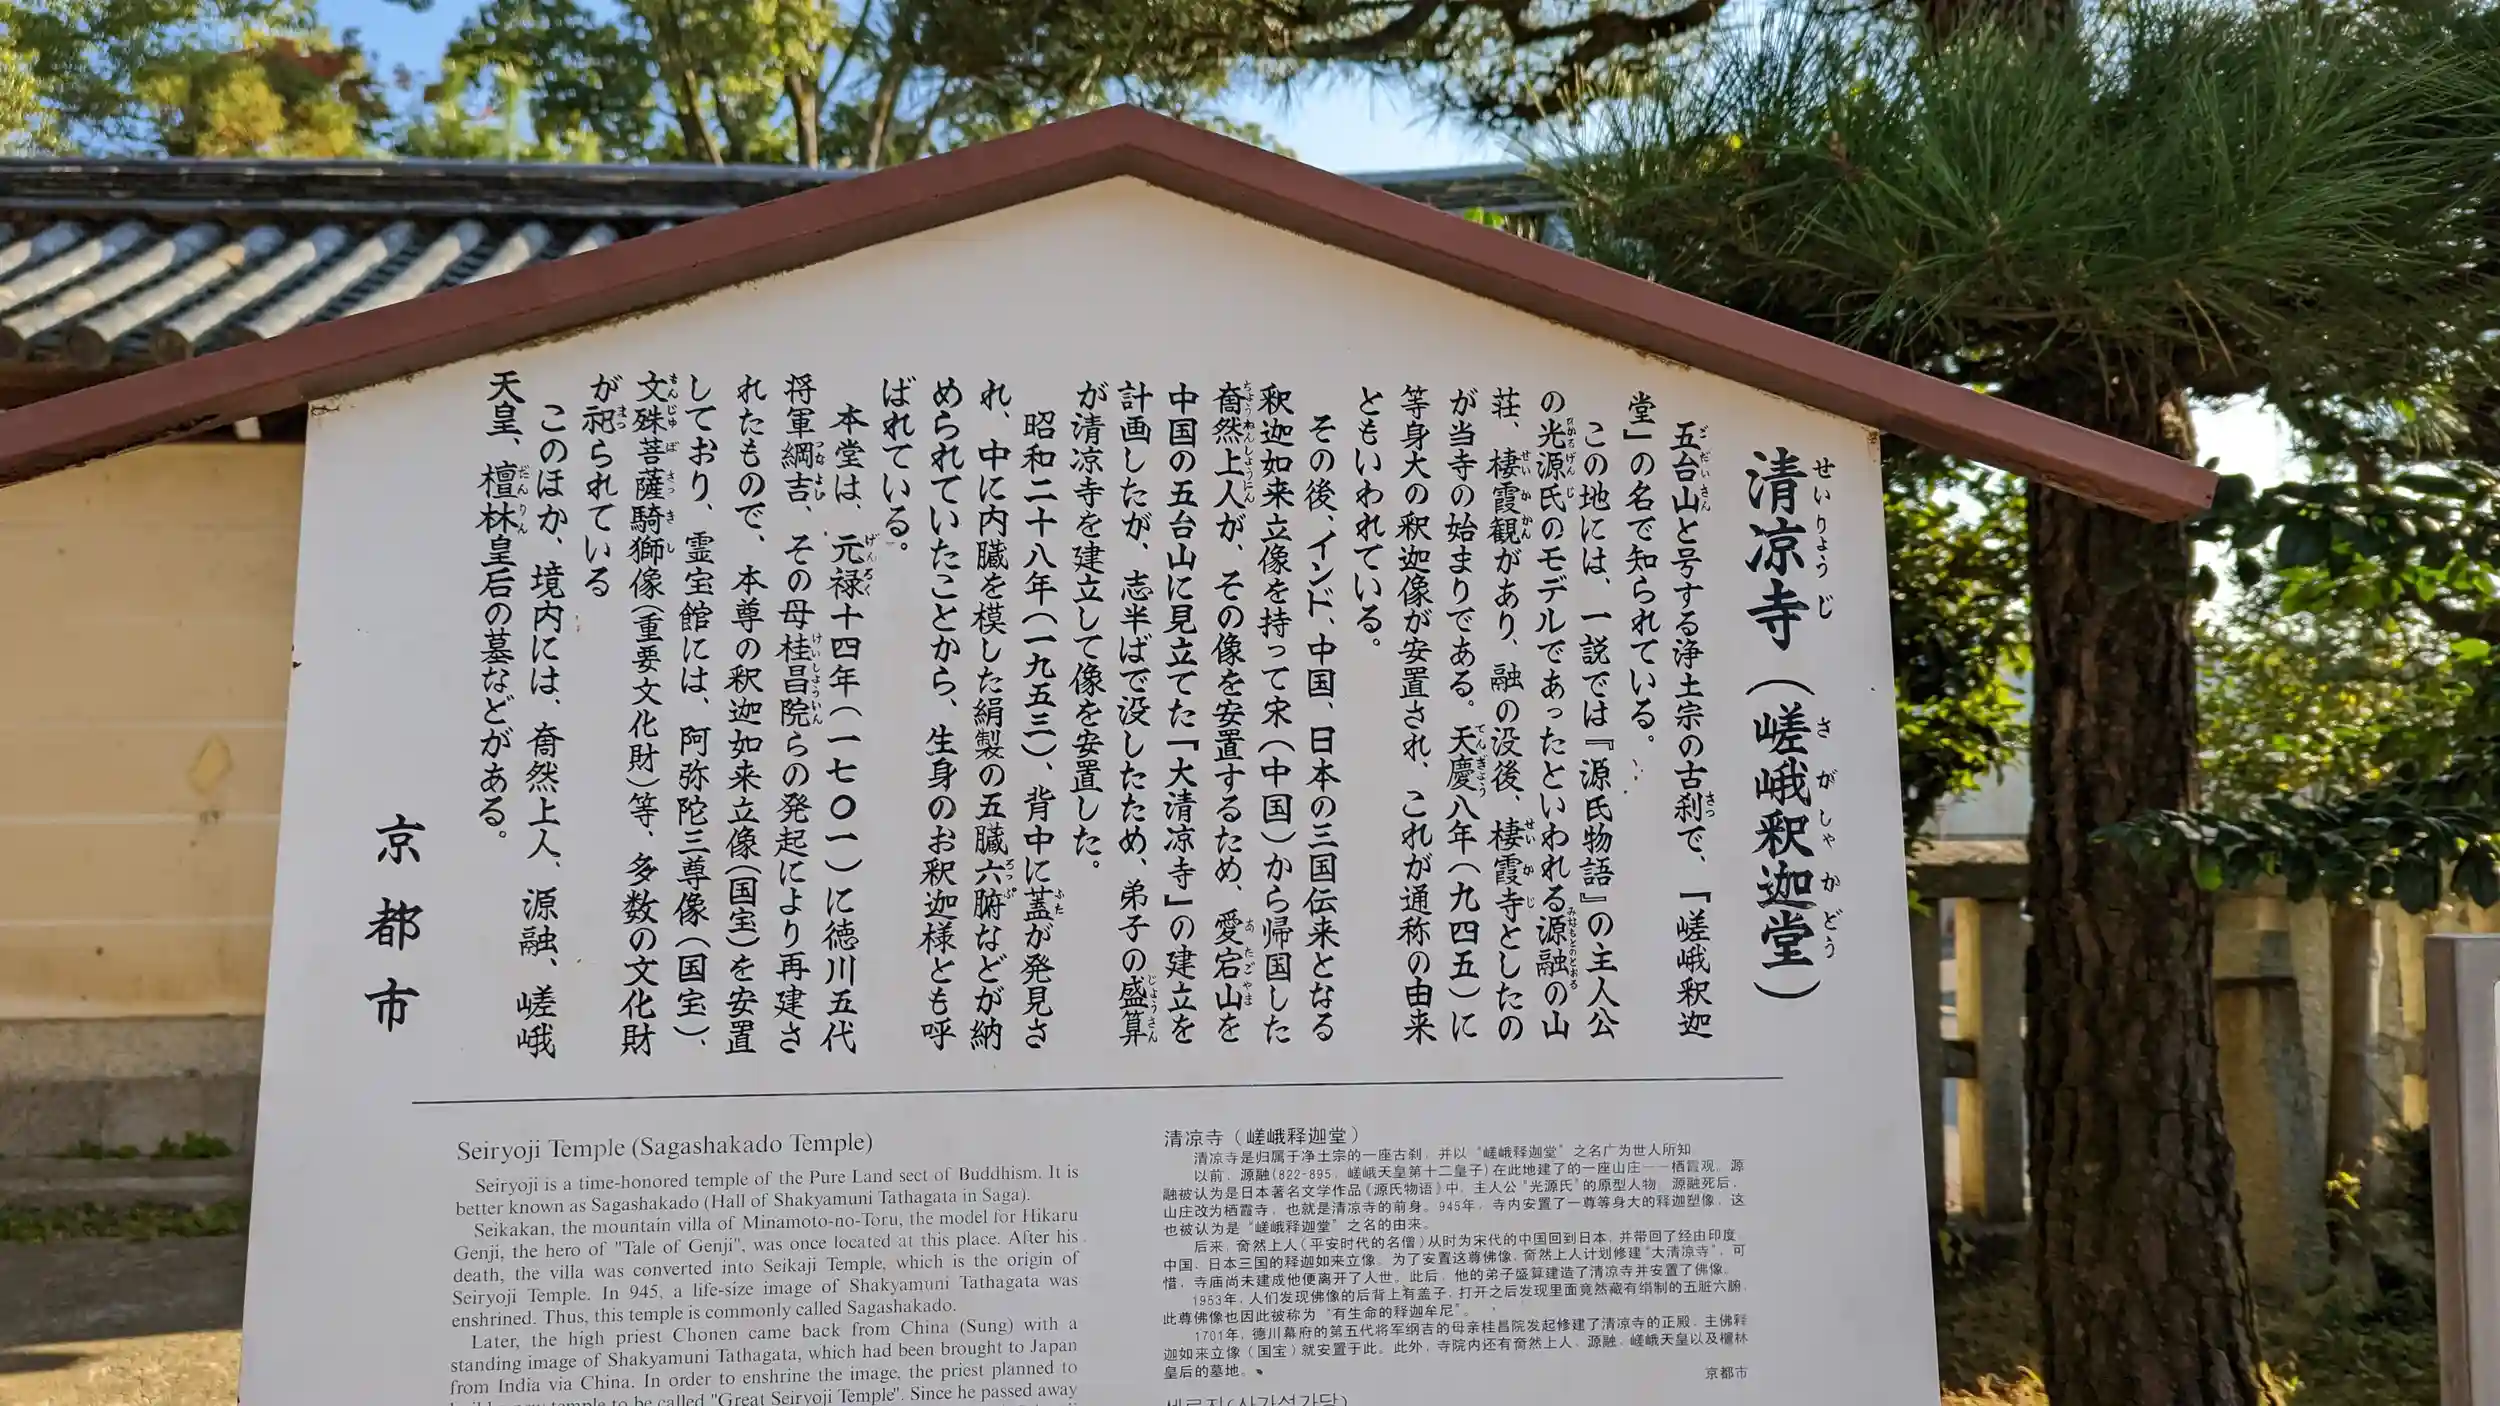 清凉寺（嵯峨釈迦堂）
五台山と号する浄土宗の古刹で、「嵯峨釈迦
堂」の名で知られている。
この地には、一説では『源氏物語』の主人公
の光源氏のモデルであったといわれる源融の山
荘、棲霞観があり、融の没後、棲霞寺としたの
が当寺の始まりである。天慶八年（九四五）に
等身大の釈迦像が安置され、これが通称の由来
ともいわれている。
その後、インド、中国、日本の三国伝来となる
釈迦如来立像を持って宋（中国）から帰国した
奝然上人が、その像を安置するため、愛宕山を
中国の五台山に見立てた「大清凉寺」の建立を
計画したが、志半ばで没したため、弟子の盛算
が清凉寺を建立して像を安置した。
昭和二十八年（一九五三）、背中に蓋が発見さ
れ、中に内臓を模した絹製の五臓六腑などが納
められていたことから、生身のお釈迦様とも呼
ばれている。
本堂は、元禄十四年（一七〇一）に徳川五代
将軍綱吉、その母桂昌院らの発起により再建さ
れたもので、本尊の釈迦如来立像（国宝）を安置
しており、霊宝館には、阿弥陀三尊像（国宝）、
文殊菩薩騎獅像（重要文化財）等、多数の文化財
が祀られている
このほか、境内には、奝然上人、源融、嵯峨
天皇、檀林皇后の墓などがある。
京都市
Seiryoji Temple (Sagashakado Temple)
Seiryoji is a time-honored temple of the Pure Land sect of Buddhism. It is
better known as Sagashakado (Hall of Shakyamuni Tathagata in Saga).
Seikakan, the mountain villa of Minamoto-no-Toru, the model for Hikaru
Genji, the hero of "Tale of Genji", was once located at this place. After his
death, the villa was converted into Seikaji Temple, which is the origin of
Seiryoji Temple. In 945, a life-size image of Shakyamuni Tathagata was
enshrined. Thus, this temple is commonly called Sagashakado.
Later, the high priest Chonen came back from China (Sung) with a
standing image of Shakyamuni Tathagata, which had been brought to Japan
from India via China. In order to enshrine the image, the priest planned to
temple to be called "Great Seiryoji Temple". Since he passed away
清凉寺（嵯峨释迦堂）
清凉寺是归属于净土宗的一座古刹，并以“嵯峨释迦堂”之名广为世人所知
以前，源融(822-895，嵯峨天皇第十二皇子)在此地建了的一座山庄——栖霞观。源
融被认为是日本著名文学作品《源氏物语》中，主人公“光源氏”的原型人物。源融死后，
山庄改为栖霞寺，也就是清凉寺的前身。945年，寺内安置了一尊等身大的释迦塑像，这
也被认为是“嵯峨释迦堂”之名的由来。
后来，奝然上人(平安时代的名僧)从时为宋代的中国回到日本，并带回了经由印度，
中国，日本三国的释迦如来立像。为了安置这尊佛像，奝然上人计划修建“大清凉寺”，可
惜，寺庙尚未建成他便离开了人世。此后，他的弟子盛算建造了清凉寺并安置了佛像。
1953年，人们发现佛像的后背上有盖子，打开之后发现里面竟然藏有绢制的五脏六腑，
此尊佛像也因此被称为“有生命的释迦牟尼”。
1701年，德川幕府的第五代将军纲吉的母亲桂昌院发起修建了清凉寺的正殿，主佛释
迦如来立像（国宝）就安置于此。此外，寺院内还有奝然上人，源融，嵯峨天皇以及檀林
皇后的墓地。
京都市